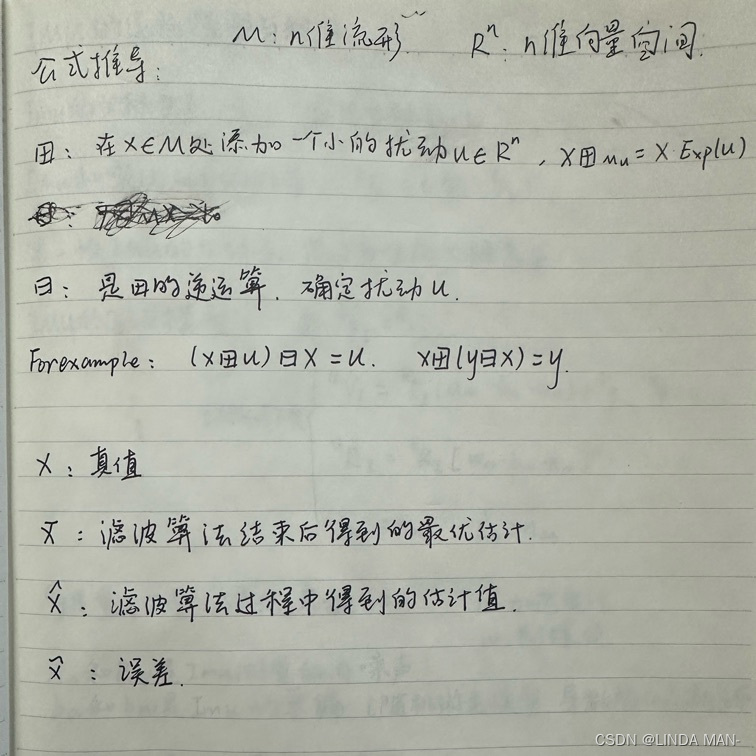 M：n维流形　　R^n：n维向量空间.
公式推导：
⊞：在x∈M处添加一个小的扰动u∈R^n，x⊞_M u = x·Exp(u)
⊟：是⊞的逆运算. 确定扰动u.
For example：(x⊞u)⊟x=u.　x⊞(y⊟x)=y.
x：真值
x̄：滤波算法结束后得到的最优估计.
x̂：滤波算法过程中得到的估计值.
x̃：误差.
CSDN @LINDA MAN-